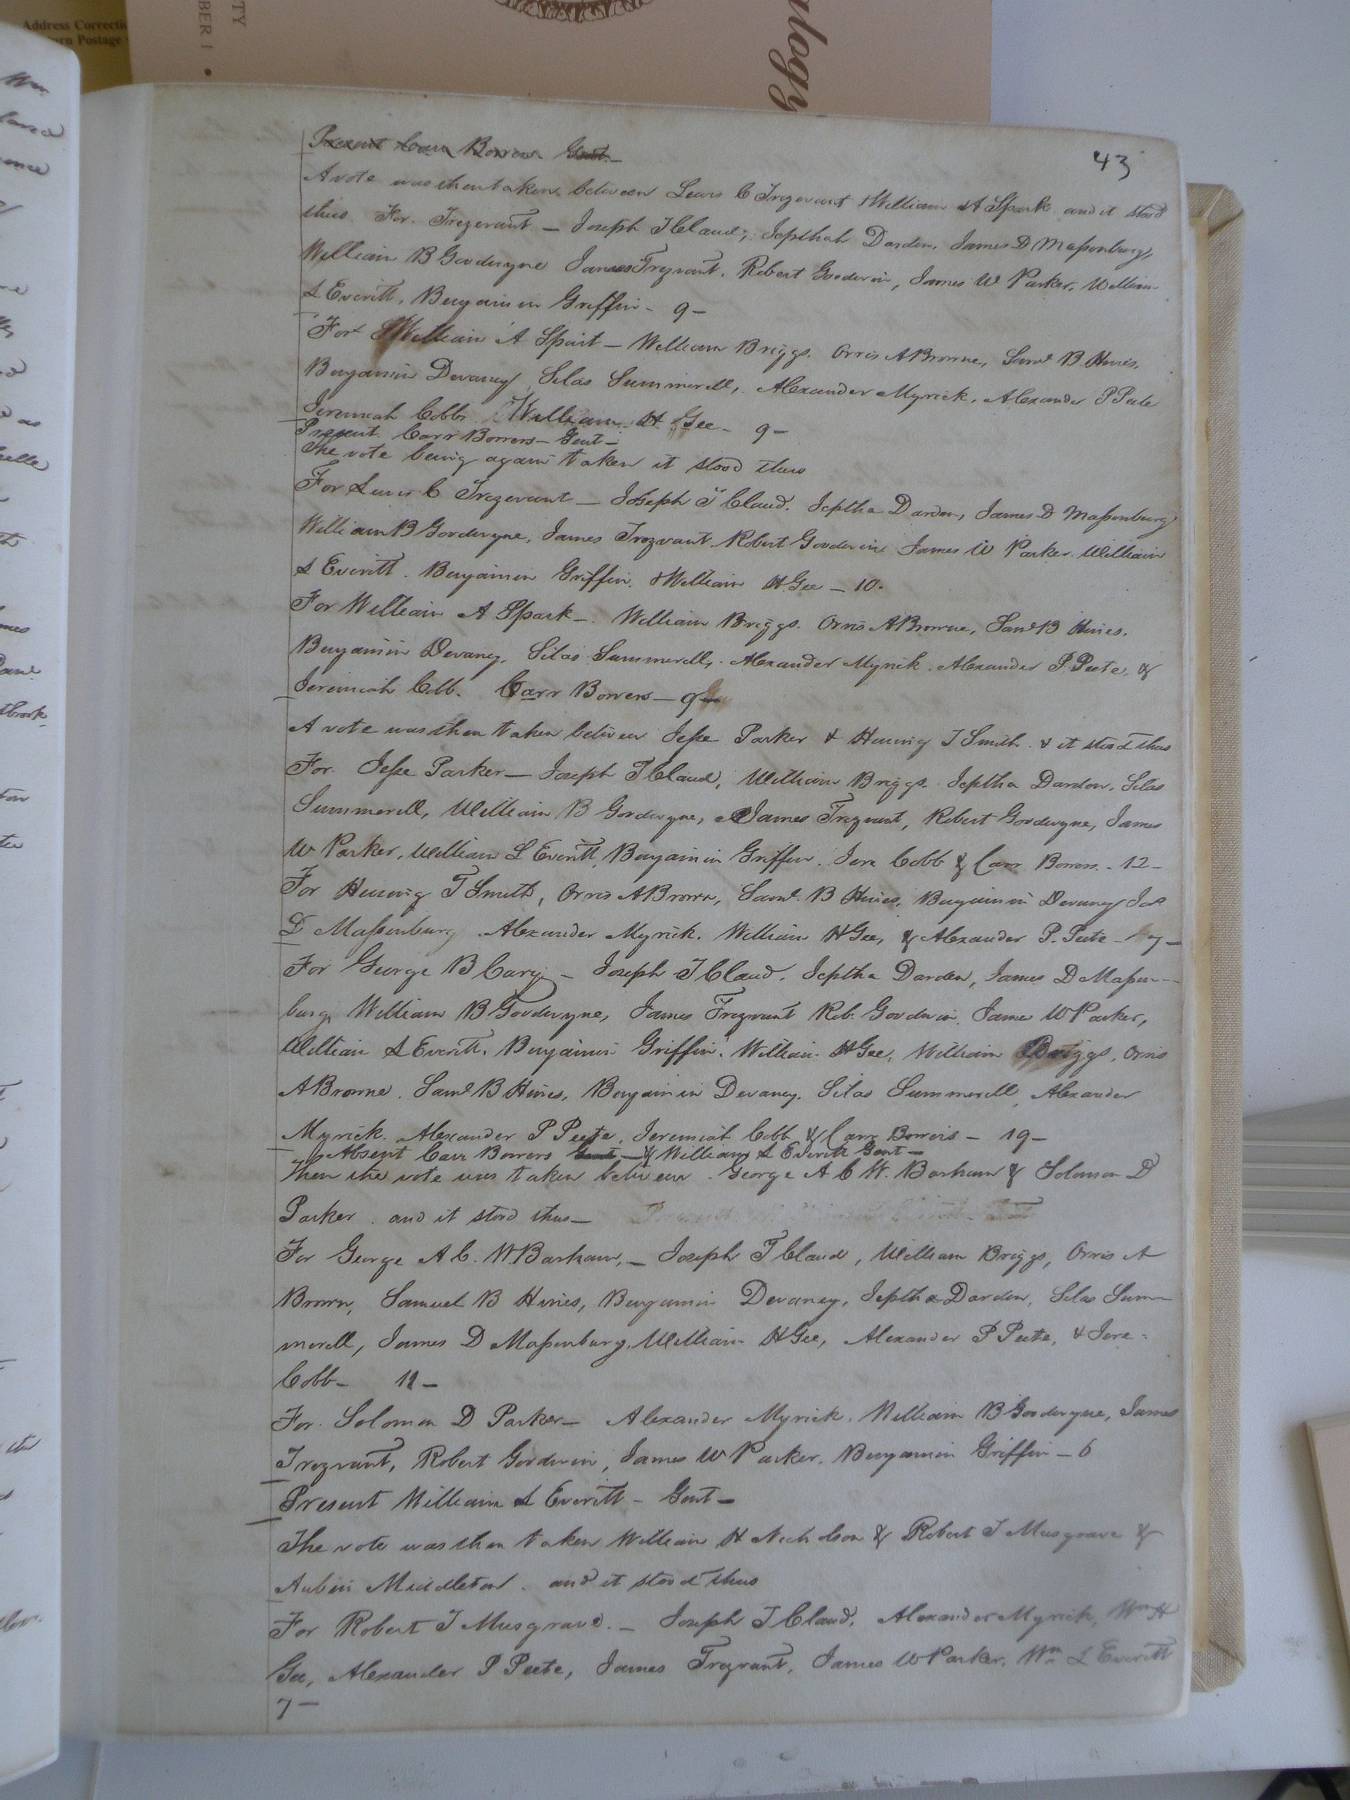 Address Correcti
rn Postage
TY
BER 1 •
ulogy
43
Present Carr Bowers Gent.—
A vote was then taken between Lewis C Trezevant & William A Spark and it stood
thus For Trezevant — Joseph T Claud, Jepthah Darden, James D Massenburg,
William B Goodwyne James Trezvant, Robert Goodwin, James W Parker, William
L Everitt, Benjamin Griffin — 9 —
For William A Spark — William Briggs, Orris A Browne, Saml B Hines,
Benjamin Devaney, Silas Summerell, Alexander Myrick, Alexander P Peete
Jeremiah Cobb William H Gee — 9 —
Present Carr Bowers — Gent —
The vote being again taken it stood thus
For Lewis C Trezevant — Joseph T Claud, Jeptha Darden, James D Massenburg
William B Goodwyne, James Trezvant Robert Goodwin James W Parker William
L Everitt, Benjamin Griffin, & William H Gee — 10.
For William A Spark — William Briggs, Orris A Browne, Saml B Hines,
Benjamin Devaney, Silas Summerell, Alexander Myrick, Alexander P Peete, &
Jeremiah Cobb. Carr Bowers — 9
A vote was then taken between Jesse Parker & Henning T Smith & it stood thus
For Jesse Parker — Joseph T Claud, William Briggs, Jeptha Darden, Silas
Summerell, William B Goodwyne, James Trezvant, Robert Goodwyne, James
W Parker, William L Everitt, Benjamin Griffin, Jere Cobb & Carr Bowers — 12 —
For Henning T Smith, Orris A Brown, Saml B Hines, Benjamin Devaney Jas
D Massenburg, Alexander Myrick, William H Gee, & Alexander P. Peete — 7 —
For George B Cary — Joseph T Claud, Jeptha Darden, James D Massen—
burg, William B Goodwyne, James Trezvant Rob. Goodwin, James W Parker,
William L Everitt, Benjamin Griffin, William H Gee, William Briggs, Orris
A Browne, Saml B Hines, Benjamin Devaney, Silas Summerell, Alexander
Myrick, Alexander P Peete, Jeremiah Cobb & Carr Bowers — 19 —
Absent Carr Bowers Gent — & William L Everitt Gent —
Then the vote was taken between George A C W. Barham & Solomon D
Parker and it stood thus —
For George A C. W. Barham, — Joseph T Claud, William Briggs, Orris A
Brown, Samuel B Hines, Benjamin Devaney, Jeptha Darden, Silas Sum—
merell, James D Massenburg, William H Gee, Alexander P Peete, & Jere
Cobb — 11 —
For Solomon D Parker — Alexander Myrick, William B Goodwyne, James
Trezvant, Robert Goodwin, James W Parker, Benjamin Griffin — 6
Present William L Everitt — Gent —
The vote was then taken William H Nicholson & Robert T Musgrave &
Aubin Middleton and it stood thus
For Robert T Musgrave — Joseph T Claud, Alexander Myrick, Wm H
Gee, Alexander P Peete, James Trezvant, James W Parker, Wm L Everitt
7 —